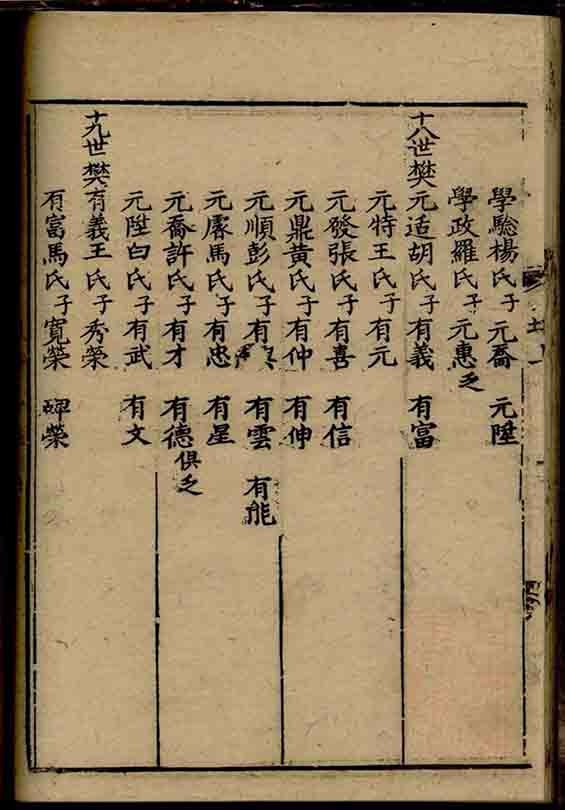 學驗楊氏子元喬 元陞
學政羅氏子元惠乏
十八世樊元适胡氏子有義 有富
元特王氏子有元
元發張氏子有喜 有信
元鼎黃氏子有仲 有伸
元順彭氏子有 有雲 有能
元馬氏子有忠 有星
元喬許氏子有才 有德俱乏
元陞白氏子有武 有文
十九世樊有義王氏子秀榮
有富馬氏子寬榮 碑榮